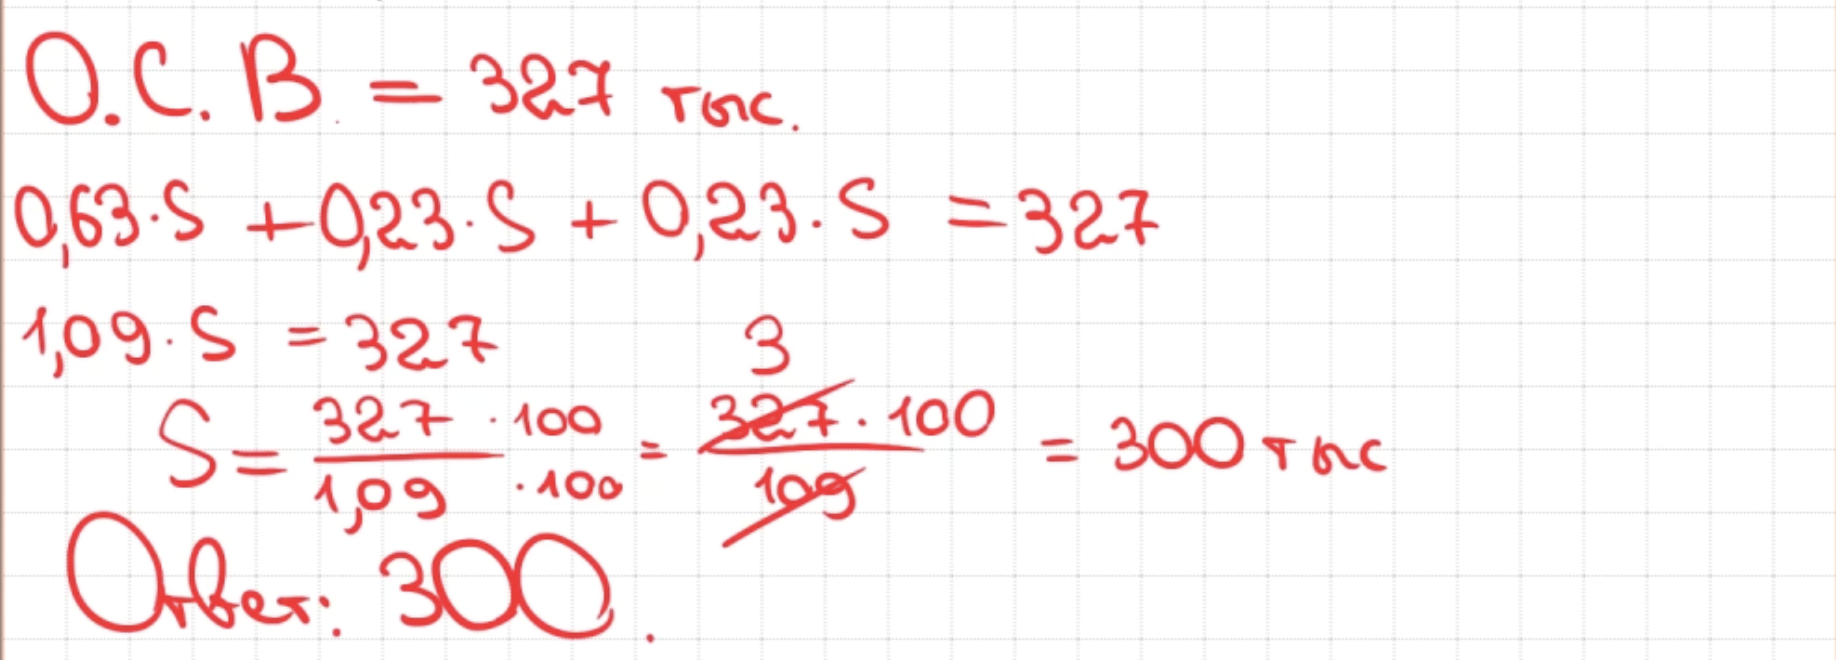 О.С.В. = 327 тыс.
0,63·S + 0,23·S + 0,23·S = 327
1,09·S = 327
S = 327·100 / 1,09·100 = 3 327·100 / 109 = 300 тыс
Ответ: 300.